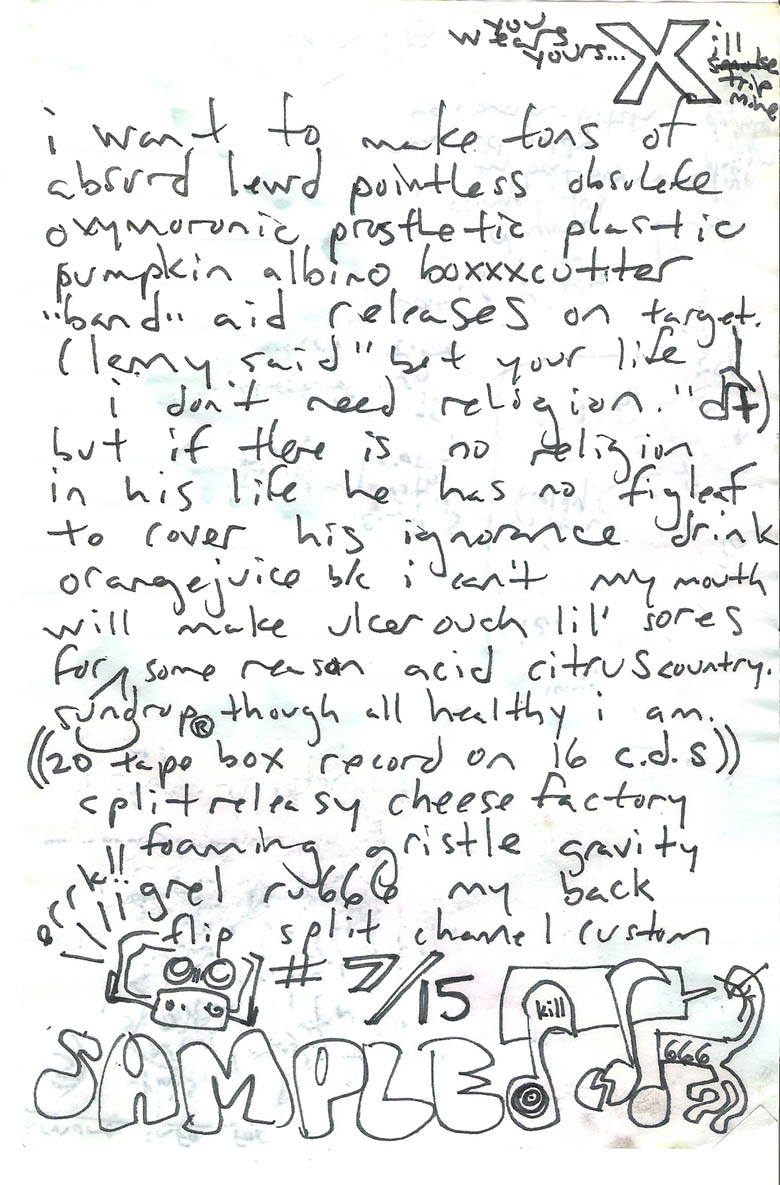 you
wears
yours... X
i'll
smoke
trip
mine
i want to make tons of
absurd lewd pointless obsolete
oxymoronic prosthetic plastic
pumpkin albino boxxxcutter
"band" aid releases on target.
(lemy said "bet your life
i don't need religion."
but if there is no religion
in his life he has no figleaf
to cover his ignorance drink
orangejuice b/c i can't my mouth
will make ulcer ouch lil' sores
for some reason acid citrus country.
sundrop® though all healthy i am.
((20 tape box record on 16 c.d.s))
split releasy cheese factory
foaming gristle gravity
igrel ru666 my back
flip split channel custom
#7/15
kill
666
SAMPLE